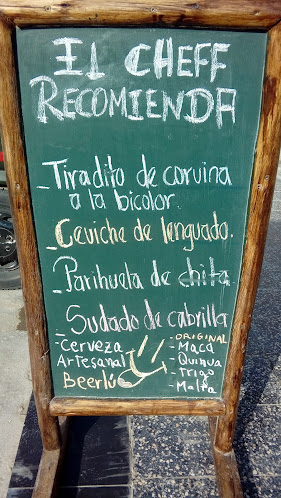 EL CHEFF
RECOMIENDA
- Tiradito de corvina
a la bicolor.
- Ceviche de lenguado.
- Parihuela de chita
- Sudado de cabrilla
- Cerveza
Artesanal
Beerlú
- ORIGINAL
- Maca
- Quinua
- Trigo
- Malta